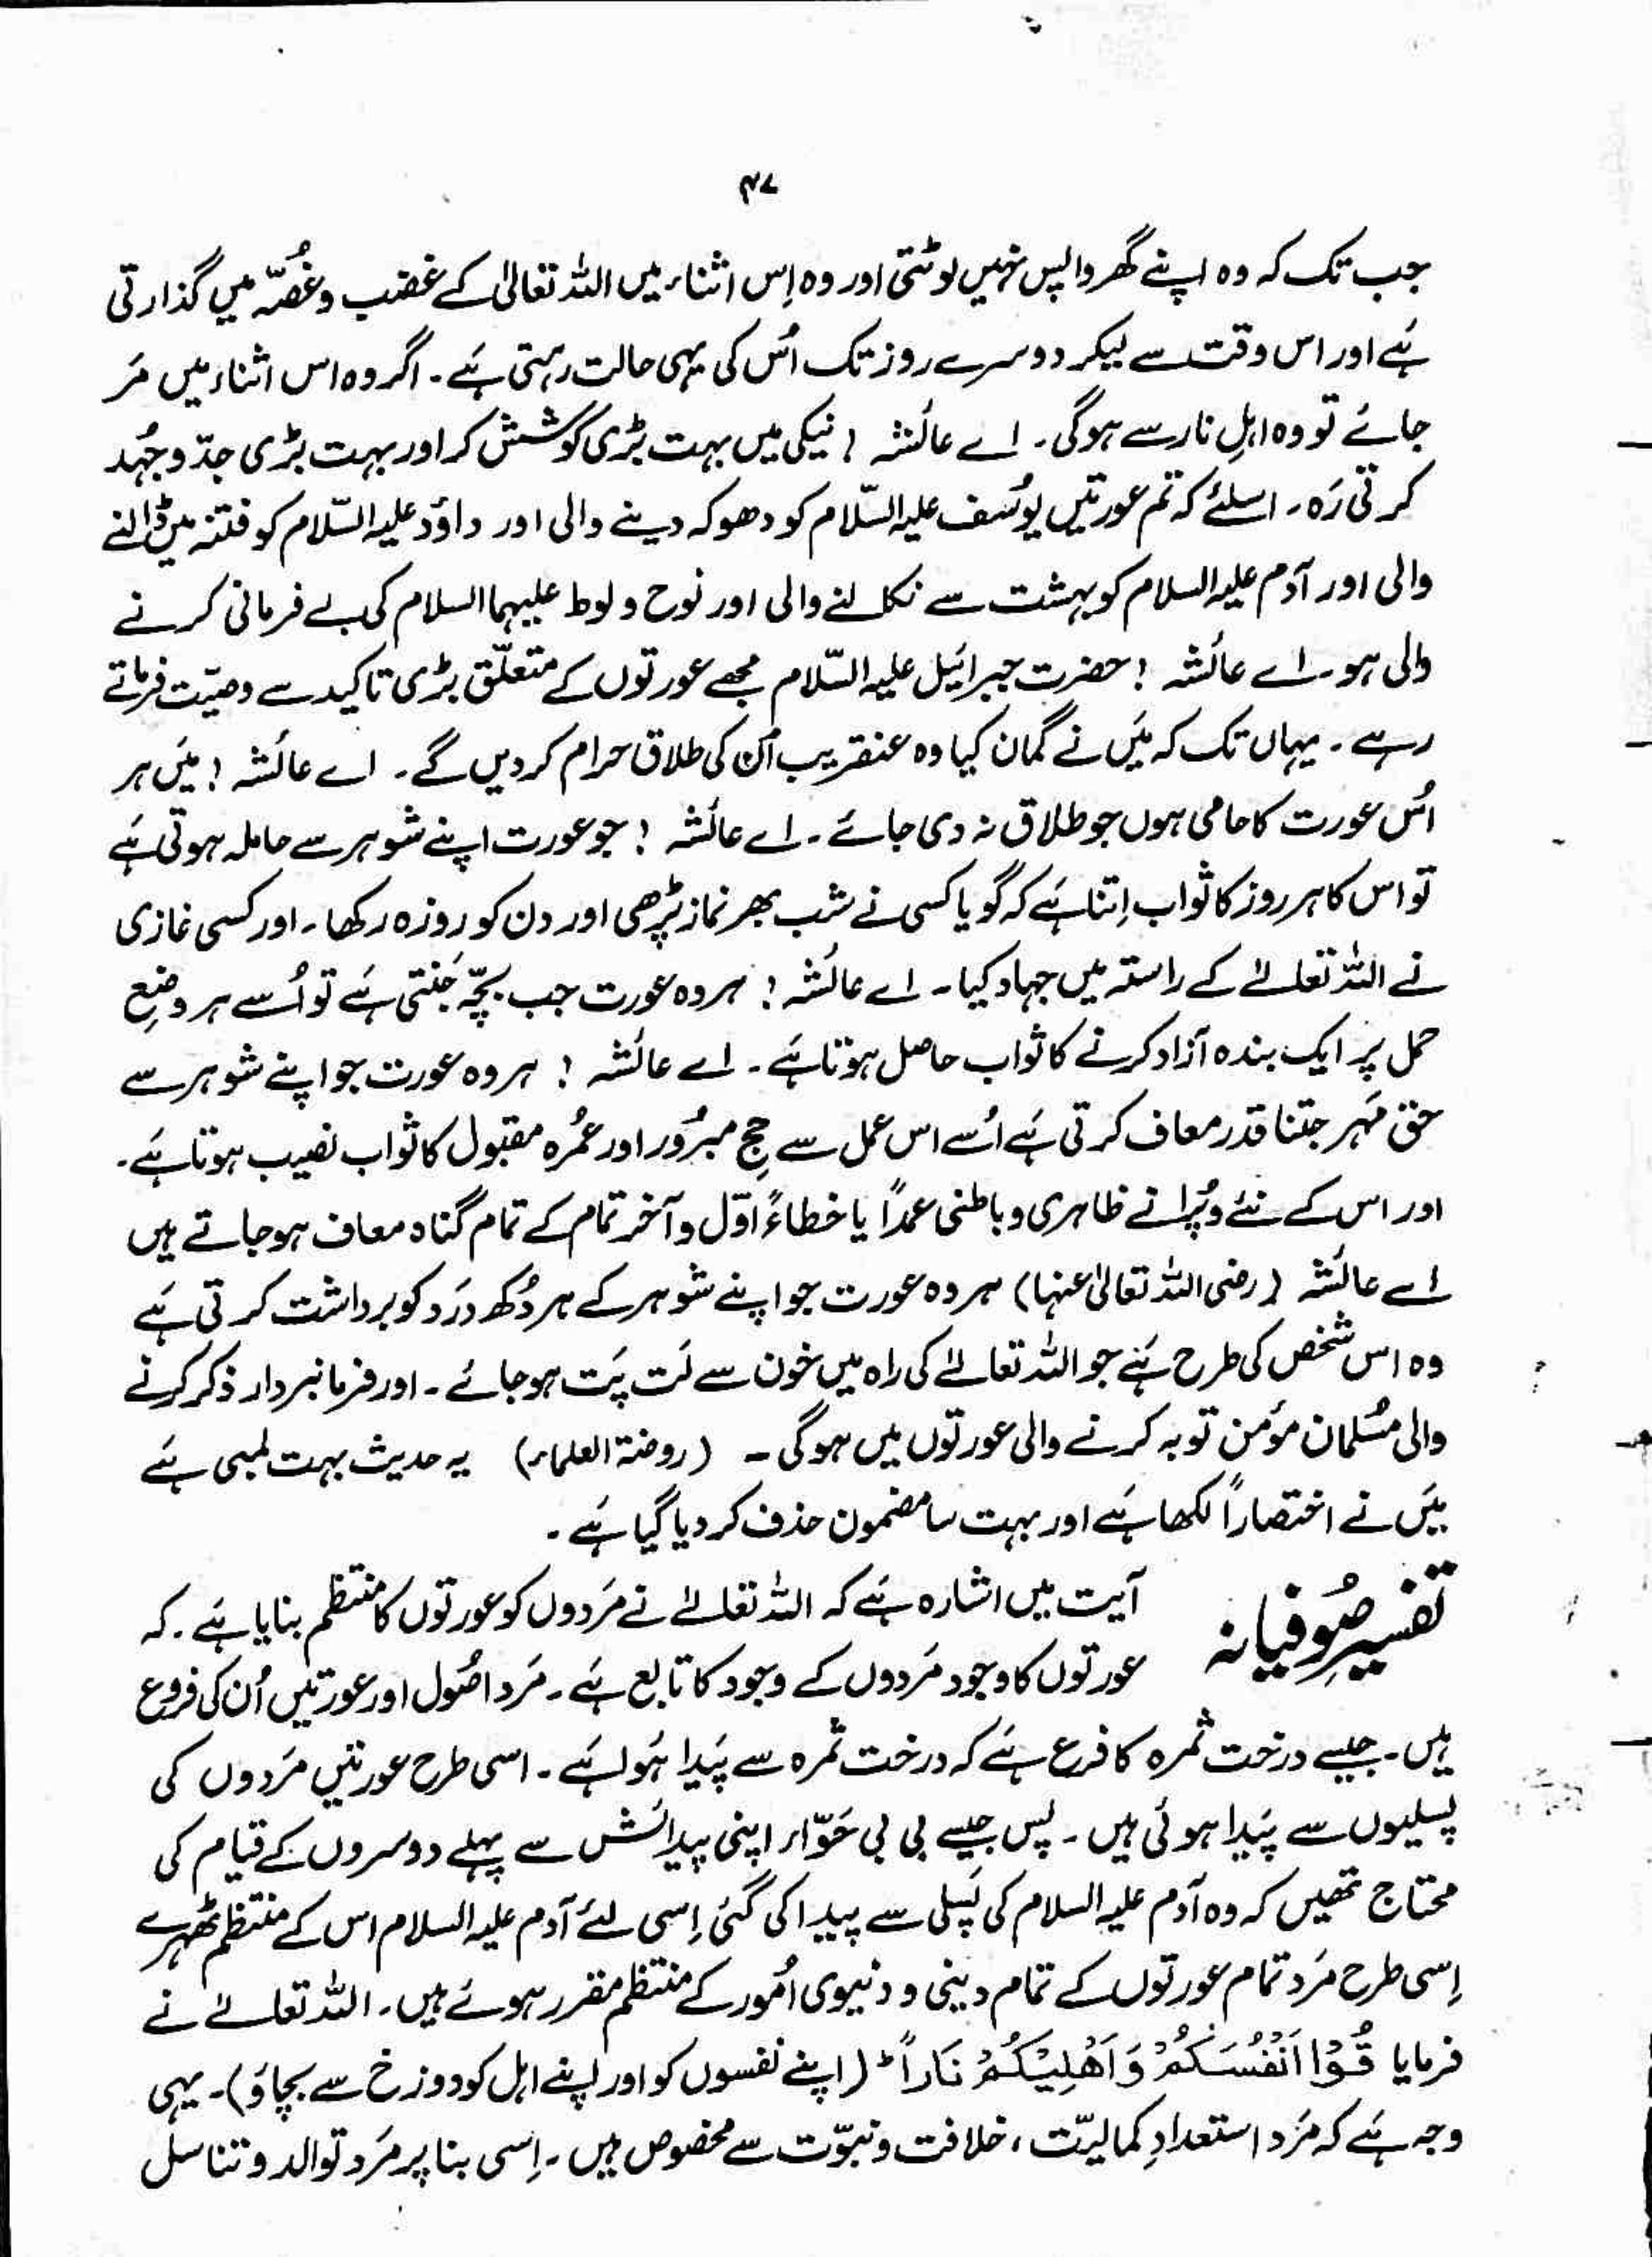 ۴۷
جب تک کہ وہ اپنے گھر واپس نہیں لوٹتی اور وہ اِس اثناء میں اللہ تعالیٰ کے غضب و غُصّہ میں گذارتی
ہَے اور اس وقت سے لیکر دوسرے روز تک اُس کی یہی حالت رہتی ہَے ۔ اگر وہ اس اثناء میں مَر
جائے تو وہ اہلِ نار سے ہوگی ۔ اے عائشہ ! نیکی میں بہت بڑی کوشش کر اور بہت بڑی جدّ و جُہد
کرتی رَہ ۔ اسلئے کہ تم عورتیں یوسُف علیہ السّلام کو دھوکہ دینے والی اور داؤد علیہ السّلام کو فتنہ میں ڈالنے
والی اور آدم علیہ السلام کو بہشت سے نکالنے والی اور نوح و لوط علیہما السلام کی بے فرمانی کرنے
والی ہو ۔ اے عائشہ ! حضرت جبرائیل علیہ السّلام مجھے عورتوں کے متعلّق بڑی تاکید سے وصیّت فرماتے
رہے ۔ یہاں تک کہ مَیں نے گمان کیا وہ عنقریب اُن کی طلاق حرام کر دیں گے ۔ اے عائشہ ! مَیں ہر
اُس عورت کا حامی ہوں جو طلاق نہ دی جائے ۔ اے عائشہ ! جو عورت اپنے شوہر سے حاملہ ہوتی ہَے
تو اس کا ہر روز کا ثواب اِتنا ہَے کہ گویا کسی نے شب بھر نماز پڑھی اور دن کو روزہ رکھا ۔ اور کسی غازی
نے اللہ تعالےٰ کے راستہ میں جہاد کیا ۔ اے عائشہ ! ہر وہ عورت جب بچّہ جَنتی ہَے تو اُسے ہر وضعِ
حمل پر ایک بندہ آزاد کرنے کا ثواب حاصل ہوتا ہَے ۔ اے عائشہ ! ہر وہ عورت جو اپنے شوہر سے
حق مَہر جتنا قدر معاف کرتی ہَے اُسے اس عمل سے حِج مبرُور اور عُمرہ مقبول کا ثواب نصیب ہوتا ہَے ۔
اور اس کے نئے و پُرانے ظاہری و باطنی عمداً یا خطاءً اوّل و آخر تمام کے تمام گناہ معاف ہو جاتے ہیں
اے عائشہ (رضی اللہ تعالیٰ عنہا) ہر وہ عورت جو اپنے شوہر کے ہر دُکھ دَرد کو برداشت کرتی ہَے
وہ اس شخص کی طرح ہَے جو اللہ تعالےٰ کی راہ میں خون سے لَت پَت ہو جائے ۔ اور فرمانبردار ذکر کرنے
والی مُسلمان مؤمن توبہ کرنے والی عورتوں میں ہوگی ۔ (روضۃ العلماء) یہ حدیث بہت لمبی ہَے
مَیں نے اختصاراً لکھا ہَے اور بہت سا مضمون حذف کر دیا گیا ہَے ۔
تفسیرِ صُوفیانہ آیت میں اشارہ ہَے کہ اللہ تعالےٰ نے مَردوں کو عورتوں کا منتظم بنایا ہَے ۔ کہ
عورتوں کا وجود مَردوں کے وجود کا تابع ہَے ۔ مَرد اصُول اور عورتیں اُن کی فروع
ہیں ۔ جیسے درخت ثمرہ کا فرع ہَے کہ درخت ثمرہ سے پَیدا ہُوا ہَے ۔ اسی طرح عورتیں مَردوں کی
پسلیوں سے پَیدا ہوئی ہیں ۔ پس جیسے بی بی حَوّاء اپنی پیدائش سے پہلے دوسروں کے قیام کی
محتاج تھیں کہ وہ آدم علیہ السلام کی پَسلی سے پیدا کی گئی اِسی لئے آدم علیہ السلام اس کے منتظم ٹھہرے
اِسی طرح مَرد تمام عورتوں کے تمام دینی و دنیوی اُمور کے منتظم مقرر ہوئے ہیں ۔ اللہ تعالےٰ نے
فرمایا قُوْا اَنْفُسَكُمْ وَ اَهْلِيْكُمْ نَاراً ط (اپنے نفسوں کو اور اپنے اہل کو دوزخ سے بچاؤ) ۔ یہی
وجہ ہَے کہ مَرد استعدادِ کمالیّت ، خلافت و نبوّت سے مخصوص ہیں ۔ اِسی بنا پر مَرد توالد و تناسل